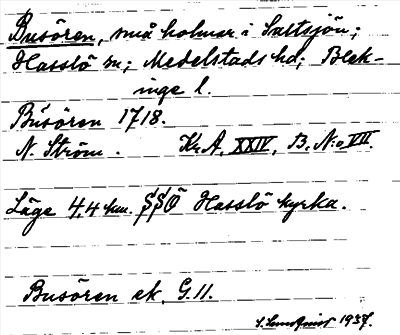 Busören, små holmar i Saltsjön;
Hasslö sn; Medelstads hd; Blek-
inge l.
Busören 1718.
N. Ström. Kr.A. XXIV, B. N:o VII.
Läge 4,4 km. SSÖ Hasslö kyrka.
Busören ek. G.11.
1937.